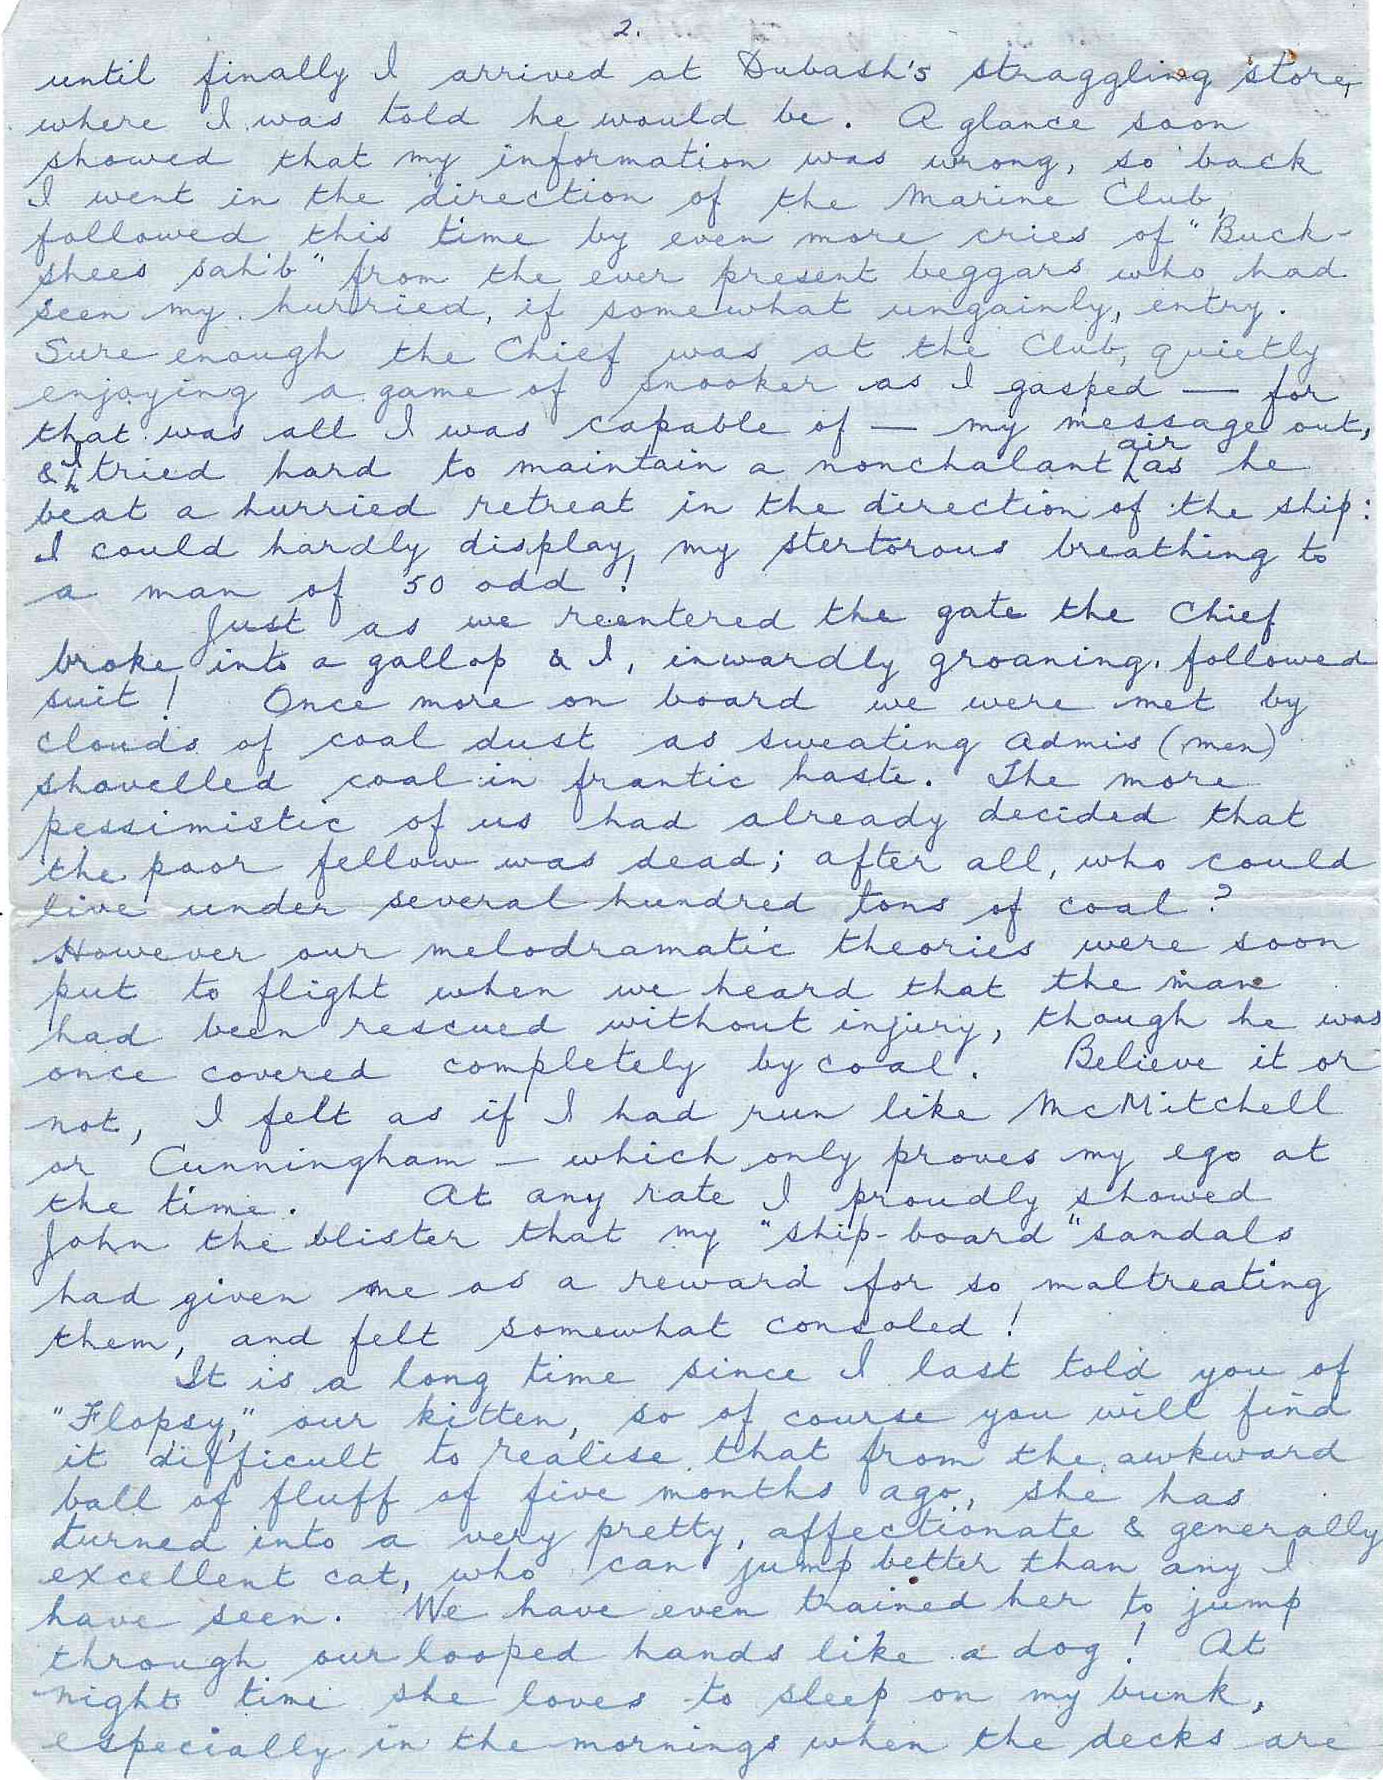 2.
until finally I arrived at Dubash's straggling store,
where I was told he would be. A glance soon
showed that my information was wrong, so back
I went in the direction of the Marine Club,
followed this time by even more cries of "Buck-
shees sah'b" from the ever present beggars who had
seen my hurried, if somewhat ungainly, entry.
Sure enough the Chief was at the Club, quietly
enjoying a game of snooker as I gasped — for
that was all I was capable of — my message out,
& I tried hard to maintain a nonchalant air as he
beat a hurried retreat in the direction of the ship:
I could hardly display my stertorous breathing to
a man of 50 odd!
Just as we reentered the gate the Chief
broke into a gallop & I, inwardly groaning, followed
suit! Once more on board we were met by
clouds of coal dust as sweating admis (men)
shovelled coal in frantic haste. The more
pessimistic of us had already decided that
the poor fellow was dead; after all, who could
live under several hundred tons of coal?
However our melodramatic theories were soon
put to flight when we heard that the man
had been rescued without injury, though he was
once covered completely by coal. Believe it or
not, I felt as if I had run like McMitchell
or Cunningham — which only proves my ego at
the time. At any rate I proudly showed
John the blister that my "ship-board" sandals
had given me as a reward for so maltreating
them, and felt somewhat consoled!
It is a long time since I last told you of
"Flopsy," our kitten, so of course you will find
it difficult to realise that from the awkward
ball of fluff of five months ago, she has
turned into a very pretty, affectionate & generally
excellent cat, who can jump better than any I
have seen. We have even trained her to jump
through our looped hands like a dog! At
night time she loves to sleep on my bunk,
especially in the mornings when the decks are